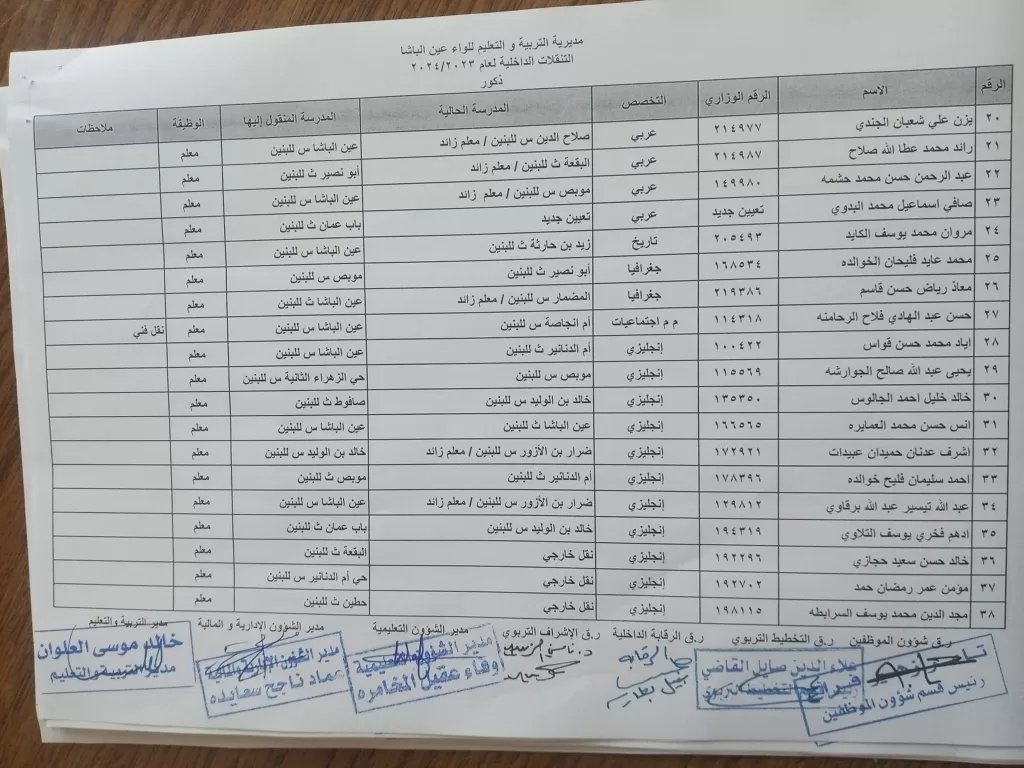 مديرية التربية و التعليم للواء عين الباشا
التنقلات الداخلية لعام ٢٠٢٤/٢٠٢٣
ذكور
الرقم الاسم الرقم الوزاري التخصص المدرسة الحالية المدرسة المنقول إليها الوظيفة ملاحظات
٢٠ يزن علي شعبان الجندي ٢١٤٩٧٧ عربي صلاح الدين س للبنين / معلم زائد عين الباشا س للبنين معلم
٢١ رائد محمد عطا الله صلاح ٢١٤٩٨٧ عربي البقعة ث للبنين / معلم زائد أبو نصير ث للبنين معلم
٢٢ عبد الرحمن حسن محمد حشمه ١٤٩٩٨٠ عربي موبص س للبنين / معلم زائد عين الباشا س للبنين معلم
٢٣ صافي اسماعيل محمد البدوي تعيين جديد عربي تعيين جديد باب عمان ث للبنين معلم
٢٤ مروان محمد يوسف الكايد ٢٠٥٤٩٣ تاريخ زيد بن حارثة ث للبنين عين الباشا س للبنين معلم
٢٥ محمد عايد فليحان الخوالده ١٦٨٥٣٤ جغرافيا أبو نصير ث للبنين موبص س للبنين معلم
٢٦ معاذ رياض حسن قاسم ٢١٩٣٨٦ جغرافيا المضمار س للبنين / معلم زائد عين الباشا ث للبنين معلم
٢٧ حسن عبد الهادي فلاح الرحامنه ١١٤٣١٨ م م اجتماعيات أم انجاصة س للبنين عين الباشا س للبنين معلم نقل فني
٢٨ اياد محمد حسن قواس ١٠٠٤٢٢ إنجليزي أم الدنانير ث للبنين عين الباشا س للبنين معلم
٢٩ يحيى عبد الله صالح الجوارشه ١١٥٥٦٩ إنجليزي موبص س للبنين حي الزهراء الثانية س للبنين معلم
٣٠ خالد خليل احمد الجالوس ١٣٥٣٥٠ إنجليزي خالد بن الوليد س للبنين صافوط ث للبنين معلم
٣١ انس حسن محمد العمايره ١٦٦٥٦٥ إنجليزي عين الباشا ث للبنين عين الباشا س للبنين معلم
٣٢ اشرف عدنان حميدان عبيدات ١٧٢٩٢١ إنجليزي ضرار بن الأزور س للبنين / معلم زائد خالد بن الوليد س للبنين معلم
٣٣ احمد سليمان فليح خوالده ١٧٨٣٩٦ إنجليزي أم الدنانير ث للبنين موبص ث للبنين معلم
٣٤ عبد الله تيسير عبد الله برقاوي ١٢٩٨١٢ إنجليزي ضرار بن الأزور س للبنين / معلم زائد عين الباشا س للبنين معلم
٣٥ ادهم فخري يوسف التلاوي ١٩٤٣١٩ إنجليزي خالد بن الوليد س للبنين باب عمان ث للبنين معلم
٣٦ خالد حسن سعيد حجازي ١٩٢٢٩٦ إنجليزي نقل خارجي البقعة ث للبنين معلم
٣٧ مؤمن عمر رمضان حمد ١٩٢٧٠٢ إنجليزي نقل خارجي حي أم الدنانير س للبنين معلم
٣٨ مجد الدين محمد يوسف السرابطه ١٩٨١١٥ إنجليزي نقل خارجي حطين ث للبنين معلم
ر.ق شؤون الموظفين ر.ق التخطيط التربوي ر.ق الرقابة الداخلية ر.ق الإشراف التربوي مدير الشؤون التعليمية مدير الشؤون الإدارية و المالية مدير التربية والتعليم
رئيس قسم شؤون الموظفين
علاء الدين صايل القاضي
التخطيط التربوي
مدير الشؤون التعليمية
وفاء عقيل المخامره
عماد ناجح سعايده
خالد موسى العلوان
مدير التربية والتعليم